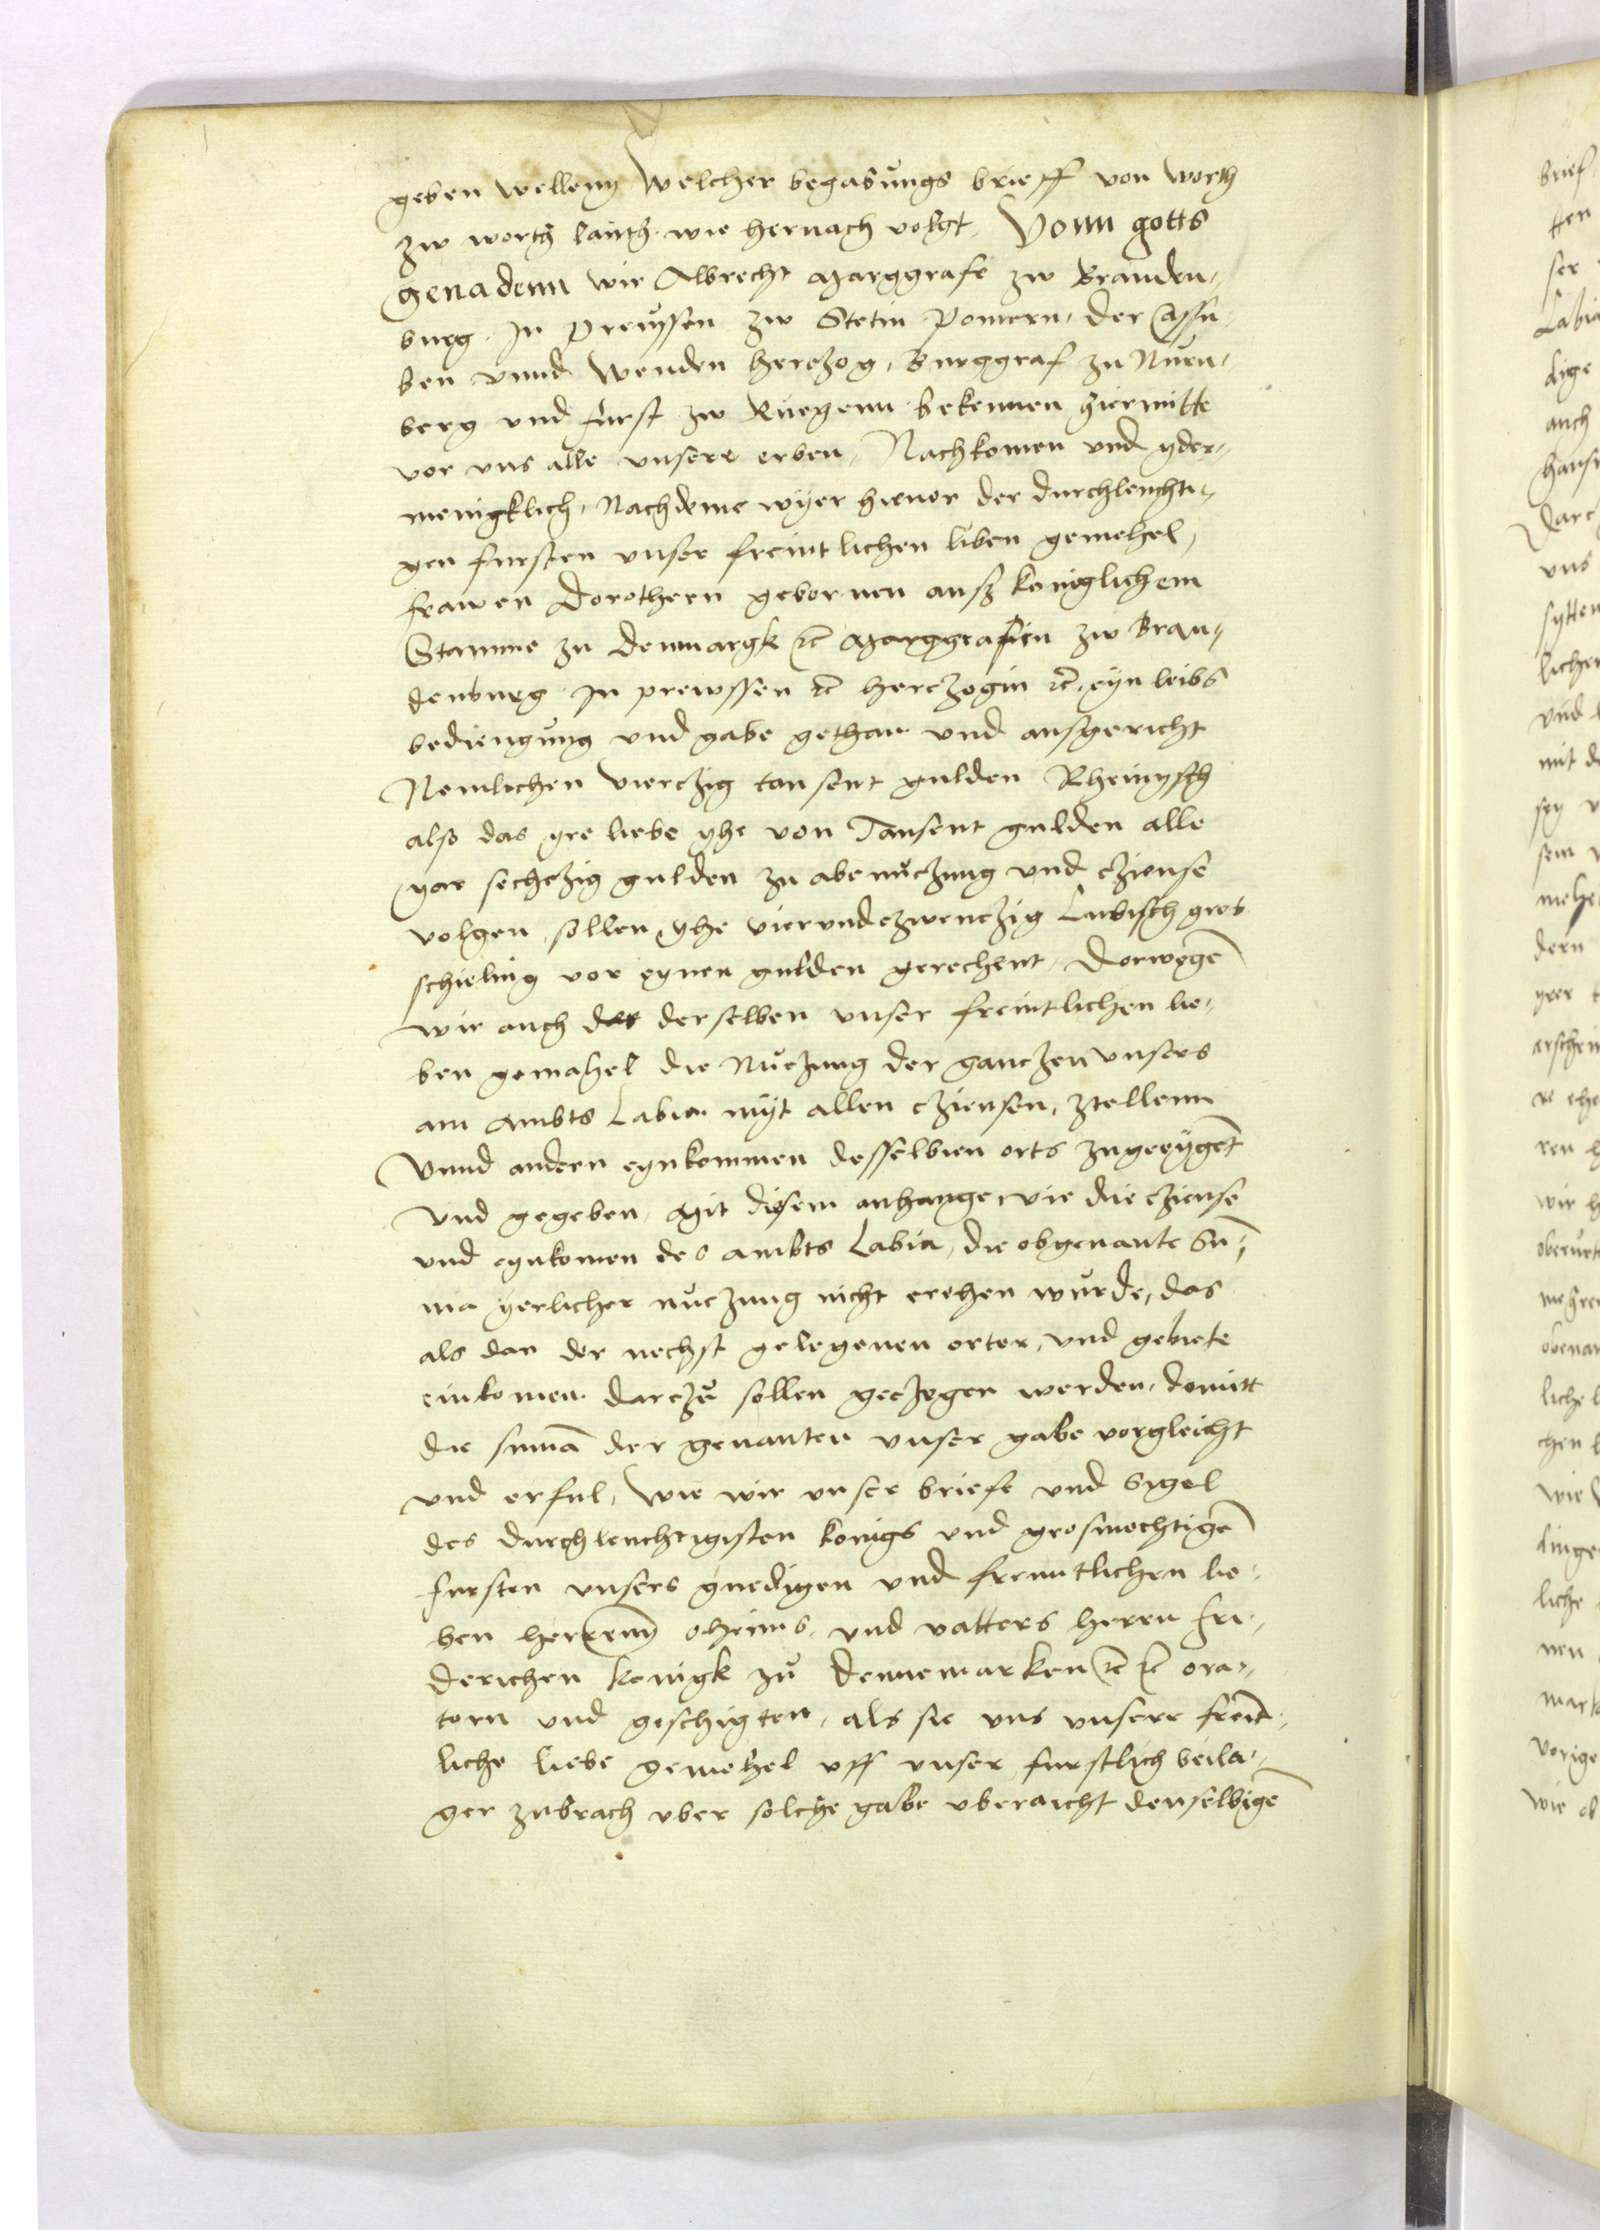 geben wellenn Welcher begabungs brieff von worth
zw worth lauth wie hernach volgt. Vonn gotts
genadenn wir Albrecht Marggrafe zw Branden-
burg In Preussen zw Stetin Pomern, der Cassu-
ben vnnd Wenden herczog, Burggraf zu Nurn-
berg vnd furst zw Ruegenn bekennen hiermitte
vor vns alle vnsere erben, Nachkomen vnd yder-
menigklich, Nachdeme wyer hieuor der durchleuchti-
gen fursten vnser freuntlichen liben gemehel,
frawen Dorotheen gebornen ausz koniglichem
Stamme zu Denmargk etc Marggrafien zw Bran-
denburg In prewssen etc herczogin etc. eyn leibs
bediengung vnd gabe gethan vnd ausgericht
Nemlichen vierczig tausent gulden Rheinysch
also das yre liebe yhe von Tausent gulden alle
yar sechczig gulden zu abenuczung vnd cziense
volgen sollen, yhe viervndczwenczig Lubisch gros
schieling vor eynen gulden gerechent, Derwegen
wir auch der derselben vnser freuntlichen lie-
ben gemahel die Nuczung der ganczen vnsers
am Ambts Labia myt allen cziensen, zcellenn
Vnnd andern eynkommen desselbien orts zugeeygent
vnd gegeben, Mit disem anhange wie die cziense
vnd eynkomen des ambts Labia, die obgenante Su-
ma yerlicher nuczung nicht ereychen wurde, das
als dan der nechst gelegenen orter, vnd gebiete
einkomen darczu sollen geczogen werden, domitt
die summa der genanten vnser gabe vorgleicht
vnd erful, wie wir vnser briefe vnd Sigel
des durchleuchtigisten konigs vnd grosmechtigen
fursten vnsers gnedigen vnd freuntlichen lie-
ben herrenn oheims, vnd vatters herrn Fri-
derichen konigk zu Dennemarken etc etc ora-
torn vnd geschigten, als sie vns vnsere freunt-
liche liebe gemehel vff vnser furstlich beila-
ger zubrach vber solche gabe vberaicht denselbigen